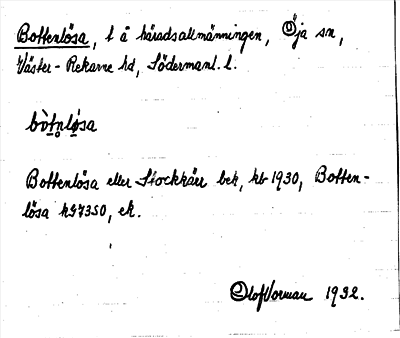 Bottenlösa, t å häradsallmänningen, Öja sn,
Väster-Rekarne hd, Södermanl. l.
bòtn̥lö̀sa
Bottenlösa eller Stockkärr bek, kb 1930, Botten-
lösa kS7350, ek.
Olof Vorman 1932.